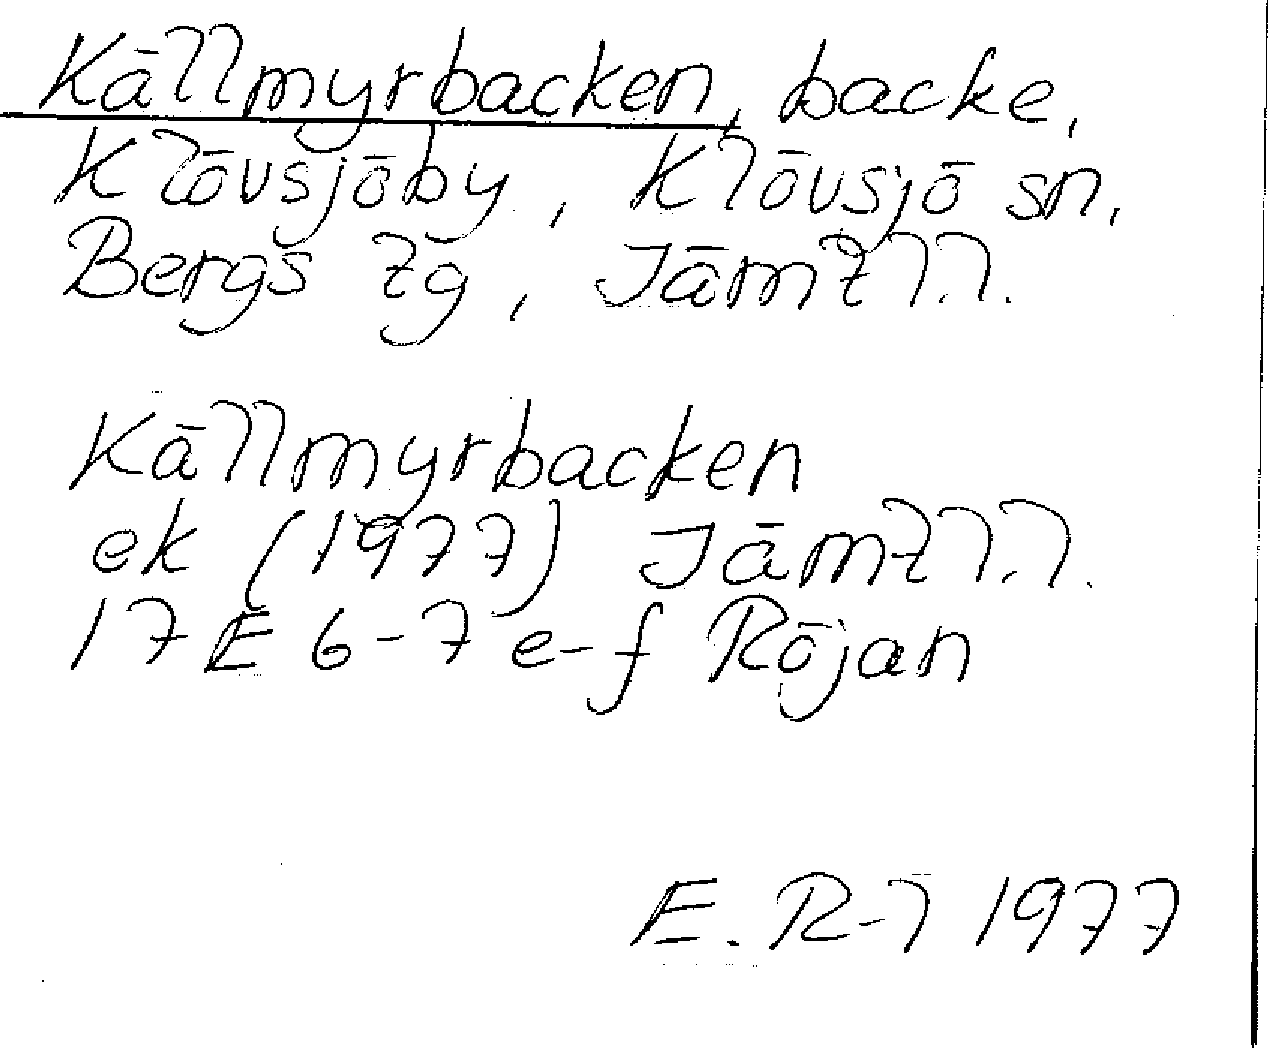 Källmyrbacken, backe,
Klövsjöby, Klövsjö sn,
Bergs tg, Jämtl.l.
Källmyrbacken
ek (1977) Jämtl.l.
17E 6-7 e-f Röjan
E. R-l 1977